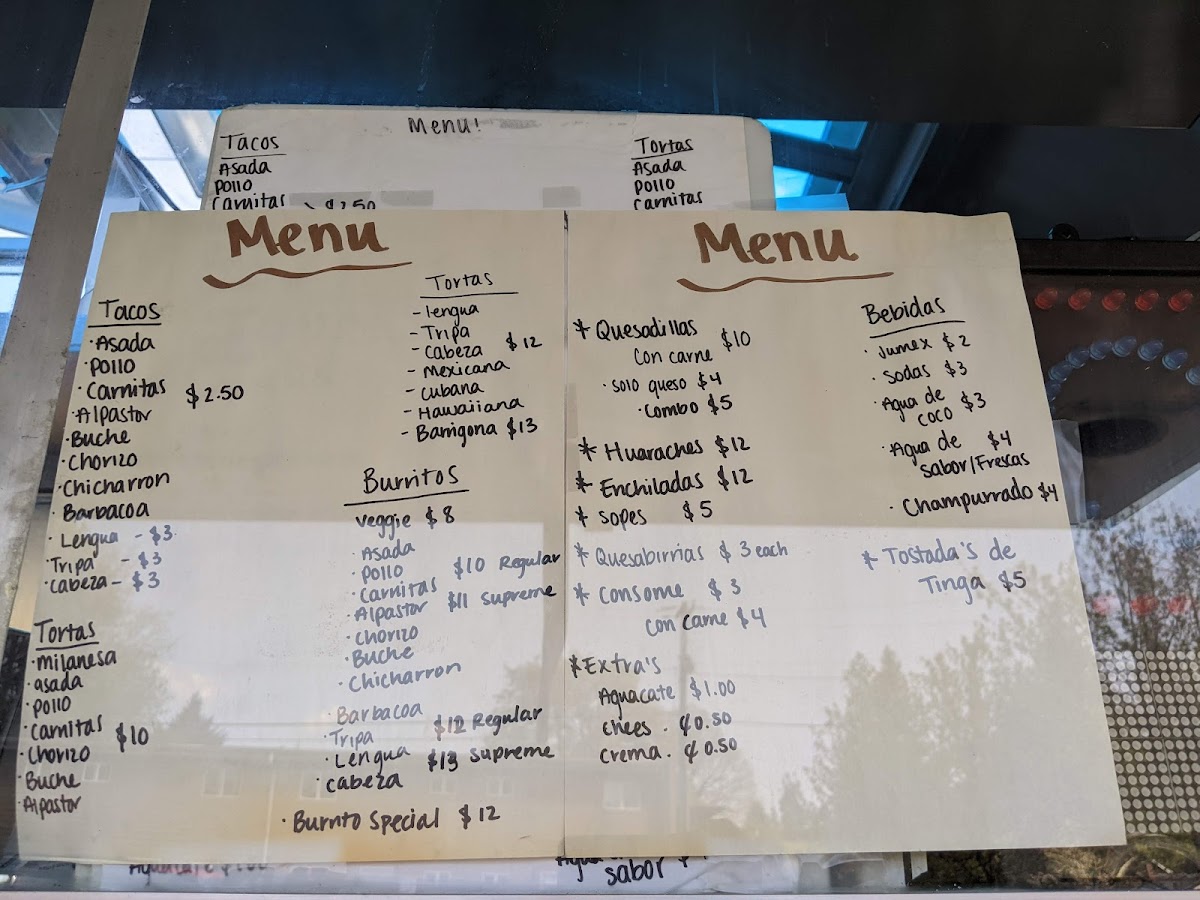 Menu!
Tacos
Asada
Pollo
Carnitas
$2.50
Tortas
Asada
Pollo
Carnitas
Menu
Tacos
· Asada
· Pollo
· Carnitas $2.50
· Alpastor
· Buche
· Chorizo
· Chicharron
· Barbacoa
· Lengua - $3
· Tripa - $3
· Cabeza - $3
Tortas
· Milanesa
· asada
· Pollo
· Carnitas $10
· Chorizo
· Buche
· Alpastor
Tortas
- lengua
- Tripa
- Cabeza $12
- Mexicana
- Cubana
- Hawaiiana
- Barrigona $13
Burritos
Veggie $8
· Asada
· Pollo $10 Regular
· Carnitas
· Alpastor $11 Supreme
· Chorizo
· Buche
· Chicharron
· Barbacoa $12 Regular
· Tripa
· Lengua $13 Supreme
· Cabeza
· Burrito Special $12
Menu
* Quesadillas $10
Con carne
· Solo queso $4
· Combo $5
* Huaraches $12
* Enchiladas $12
* Sopes $5
* Quesabirrias $3 each
* Consome $3
Con Carne $4
* Extra's
Aguacate $1.00
Chees . ¢0.50
Crema . ¢0.50
Bebidas
· Jumex $2
· Sodas $3
· Agua de
coco $3
· Agua de $4
Sabor/Frescas
· Champurrado $4
* Tostada's de
Tinga $5
sabor